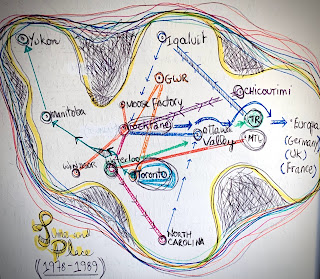 Yukon
Iqaluit
GWR
CHICOUTIMI
Moose Factory
Manitoba
TR
Europa
(Germany)
(UK)
(France)
Ottawa
Valley
MTL
Windsor
Waterloo
Toronto
NORTH
CAROLINA
Place
(1978-1989)